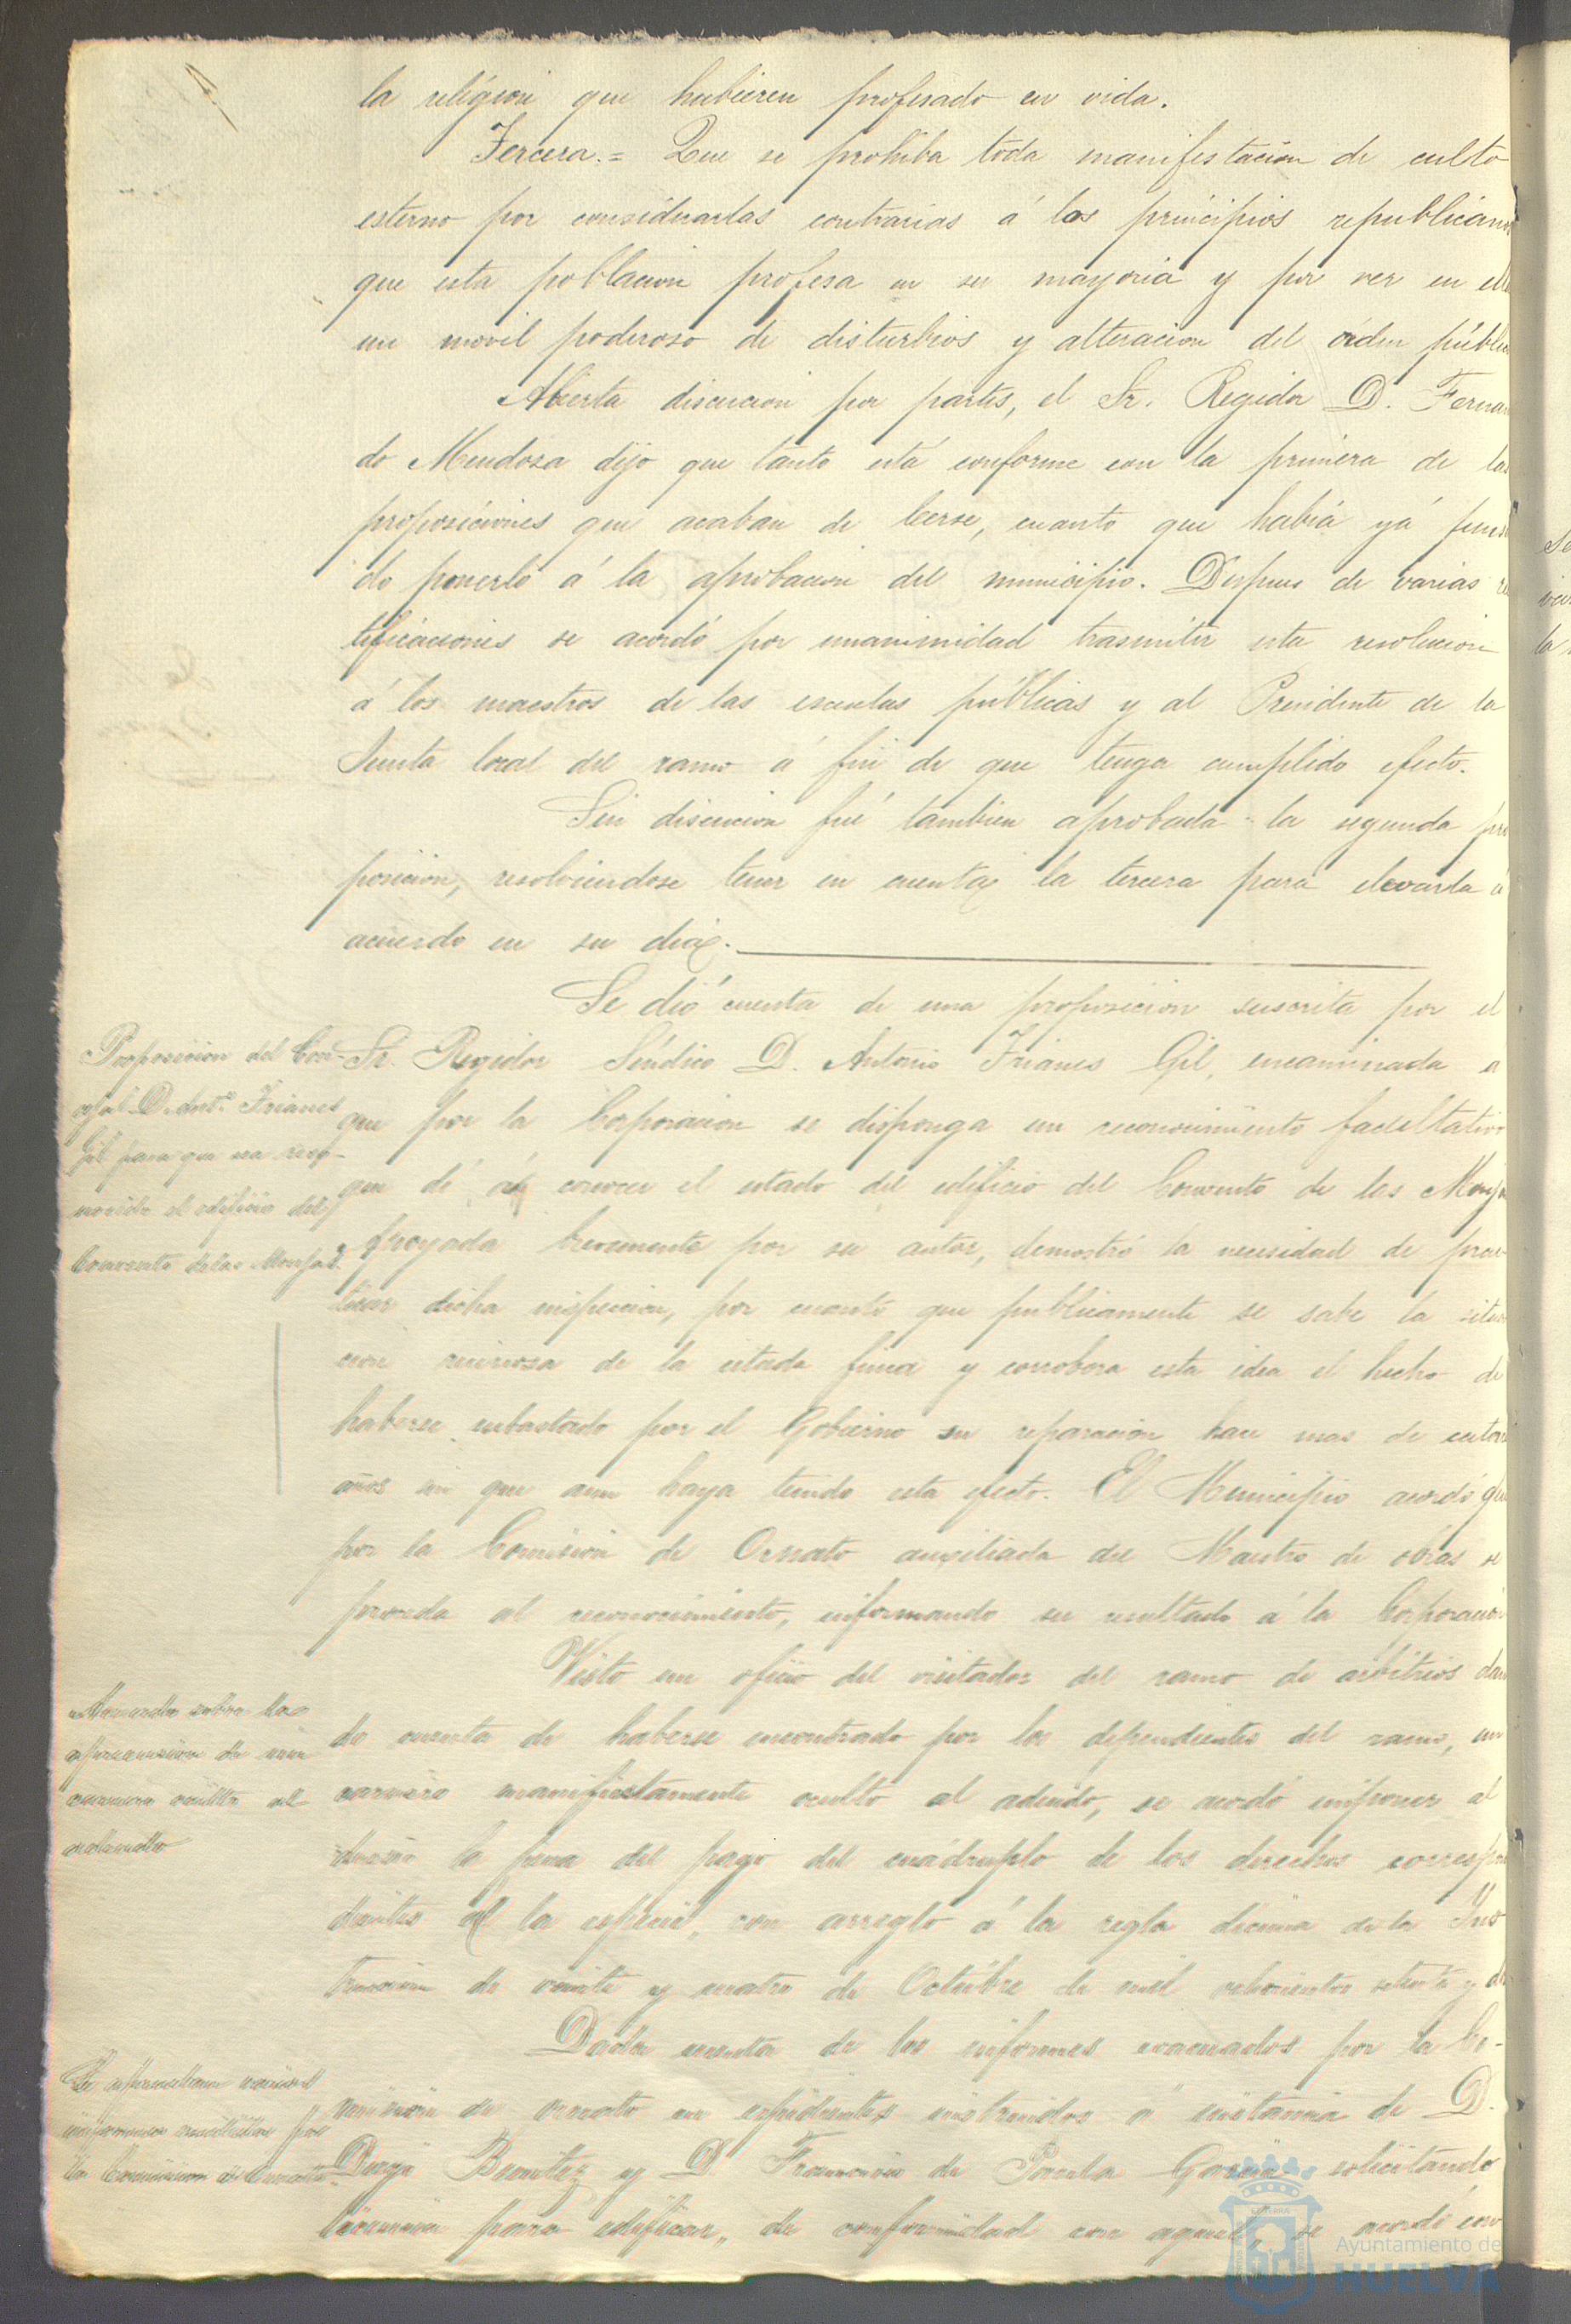 la religion que hubieren profesado en vida.
Tercera.= Que se prohiba toda manifestacion de culto
esterno por considerarlas contrarias á los principios republican
que esta poblacion profesa en su mayoria y por ver en ell
un movil poderoso de disturbios y alteracion del orden públic
Abierta discucion por partes, el Sr. Regidor D. Fernan
do Mendoza dijo que tanto está conforme con la primera de las
proposiciones que acaban de leerse, cuanto que habia yá pensa
do ponerlo á la aprobacion del municipio. Despues de varias rec
tificaciones se acordó por unanimidad trasmitir esta resolucion
á los maestros de las escuelas públicas y al Presidente de la
Junta local del ramo á fin de que tenga cumplido efecto.
Sin discucion fué tambien aprobada la segunda pro
posicion, resolviendose tener en cuenta la tercera para elevarla á
acuerdo en su dia.
Se dió cuenta de una proposicion suscrita por el
Proposicion del Con-
cejal D. Antº. Frianes
Gil para que sea reco-
nocido el edificio del
Convento de las Monjas.
Sr. Regidor Síndico D. Antonio Frianes Gil, encaminada a
que por la Corporacion se disponga un reconocimiento facultativo
que dé á conocer el estado del edificio del Convento de las Monja
Apoyada brevemente por su autor, demostró la necesidad de prac
ticar dicha inspeccion, por cuanto que publicamente se sabe la situa
cion ruinosa de la citada finca y corrobora esta idea el hecho de
haberse subastado por el Gobierno su reparacion hace mas de
años sin que aun haya tenido esta efecto. El Municipio acordó que
por la Comision de Ornato auxiliada del Maestro de obras se
proceda al reconocimiento, informando su resultado á la Corporacion
Visto un oficio del visitador del ramo de arbitrios dan
Acuerdo sobre la
aprehension de un
carnero oculto al
adeudo
do cuenta de haberse encontrado por los dependientes del ramo, un
carnero manifiestamente oculto al adeudo, se acordó imponer al
dueño la pena del pago del cuádruplo de los derechos correspon
dientes á la especie, con arreglo á la regla décima de la Ins
truccion de veinte y cuatro de Octubre de mil ochocientos setenta y
Dada cuenta de los informes evacuados por la Co-
Se aprueban varios
informes emitidos por
la Comision de Ornato.
mision de ornato en espedientes instruidos á instancia de D.
Diego Benitez y D. Francisco de Paula Garcia solicitando
licencia para edificar, de conformidad con aquel, se acordó con
Ayuntamiento de
HUELVA